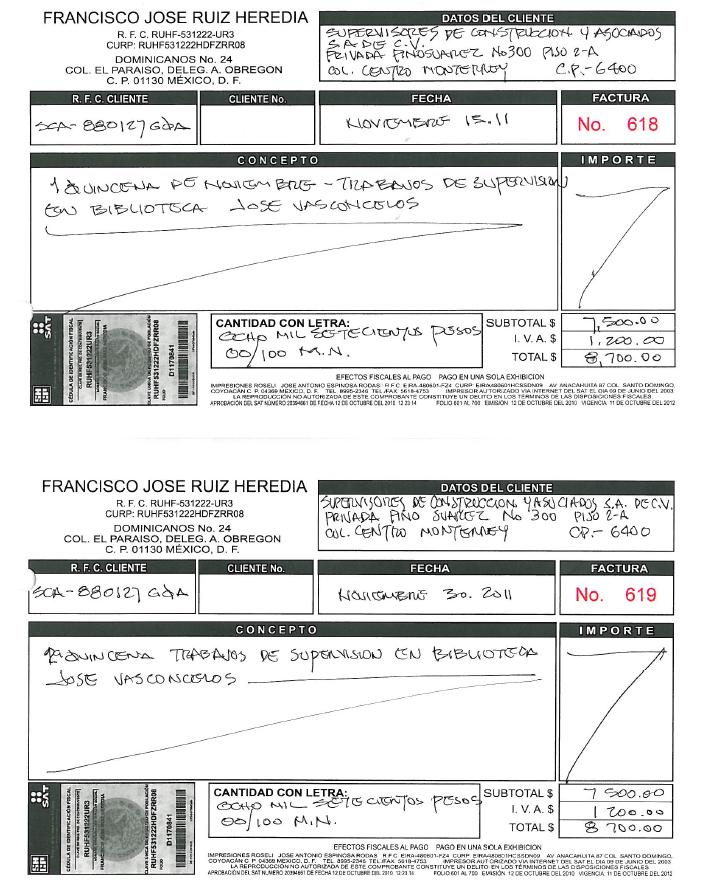 FRANCISCO JOSE RUIZ HEREDIA
R. F. C. RUHF-531222-UR3
CURP: RUHF531222HDFZRR08
DOMINICANOS No. 24
COL. EL PARAISO, DELEG. A. OBREGON
C. P. 01130 MÉXICO, D. F.
DATOS DEL CLIENTE
SUPERVISORES DE CONSTRUCCION Y ASOCIADOS
S.A DE C.V.
PRIVADA PINO SUAREZ No 300 PISO 2-A
COL. CENTRO MONTERREY C.P.- 6400
R. F. C. CLIENTE CLIENTE No. FECHA FACTURA
SCA-880127 NOVIEMBRE 15.11 No. 618
CONCEPTO IMPORTE
1a QUINCENA DE NOVIEMBRE - TRABAJOS DE SUPERVISION
EN BIBLIOTECA JOSE VASCONCELOS
SAT
CÉDULA DE IDENTIFICACIÓN FISCAL
RUHF531222UR3
RUHF531222HDFZRR08
D1179841
CANTIDAD CON LETRA:
OCHO MIL SETECIENTOS PESOS
00/100 M.N.
SUBTOTAL $ 7,500.00
I. V. A. $ 1,200.00
TOTAL $ 8,700.00
EFECTOS FISCALES AL PAGO PAGO EN UNA SOLA EXHIBICION
IMPRESIONES ROSELI JOSE ANTONIO ESPINOSA RODAS R.F.C. EIRA-480601-FZ4 CURP EIRA480601HCSSDN09 AV ANACAHUITA 87 COL. SANTO DOMINGO,
COYOACÁN C. P. 04369 MEXICO, D. F. TEL. 8995-2346 TEL./FAX 5618-4753 IMPRESOR AUTORIZADO VIA INTERNET DEL SAT EL DIA 09 DE JUNIO DEL 2003
LA REPRODUCCIÓN NO AUTORIZADA DE ESTE COMPROBANTE CONSTITUYE UN DELITO EN LOS TÉRMINOS DE LAS DISPOSICIONES FISCALES.
APROBACIÓN DEL SAT NÚMERO 20394661 DE FECHA 12 DE OCTUBRE DEL 2010 12:23:14 FOLIO 601 AL 700 EMISIÓN 12 DE OCTUBRE DEL 2010 VIGENCIA 11 DE OCTUBRE DEL 2012
FRANCISCO JOSE RUIZ HEREDIA
R. F. C. RUHF-531222-UR3
CURP: RUHF531222HDFZRR08
DOMINICANOS No. 24
COL. EL PARAISO, DELEG. A. OBREGON
C. P. 01130 MÉXICO, D. F.
DATOS DEL CLIENTE
SUPERVISORES DE CONSTRUCCION Y ASOCIADOS S.A. DE C.V.
PRIVADA PINO SUAREZ No 300 PISO 2-A
COL. CENTRO MONTERREY CP.- 6400
R. F. C. CLIENTE CLIENTE No. FECHA FACTURA
SCA-880127 NOVIEMBRE 30. 2011 No. 619
CONCEPTO IMPORTE
2a QUINCENA TRABAJOS DE SUPERVISION EN BIBLIOTECA
JOSE VASCONCELOS
SAT
CÉDULA DE IDENTIFICACIÓN FISCAL
RUHF531222UR3
RUHF531222HDFZRR08
D1179841
CANTIDAD CON LETRA:
OCHO MIL SETECIENTOS PESOS
00/100 M.N.
SUBTOTAL $ 7 500.00
I. V. A. $ 1 200.00
TOTAL $ 8 700.00
EFECTOS FISCALES AL PAGO PAGO EN UNA SOLA EXHIBICION
IMPRESIONES ROSELI JOSE ANTONIO ESPINOSA RODAS R.F.C. EIRA-480601-FZ4 CURP EIRA480601HCSSDN09 AV ANACAHUITA 87 COL. SANTO DOMINGO,
COYOACÁN C. P. 04369 MEXICO, D. F. TEL. 8995-2346 TEL./FAX 5618-4753 IMPRESOR AUTORIZADO VIA INTERNET DEL SAT EL DIA 09 DE JUNIO DEL 2003
LA REPRODUCCIÓN NO AUTORIZADA DE ESTE COMPROBANTE CONSTITUYE UN DELITO EN LOS TÉRMINOS DE LAS DISPOSICIONES FISCALES.
APROBACIÓN DEL SAT NÚMERO 20394661 DE FECHA 12 DE OCTUBRE DEL 2010 12:23:14 FOLIO 601 AL 700 EMISIÓN 12 DE OCTUBRE DEL 2010 VIGENCIA 11 DE OCTUBRE DEL 2012